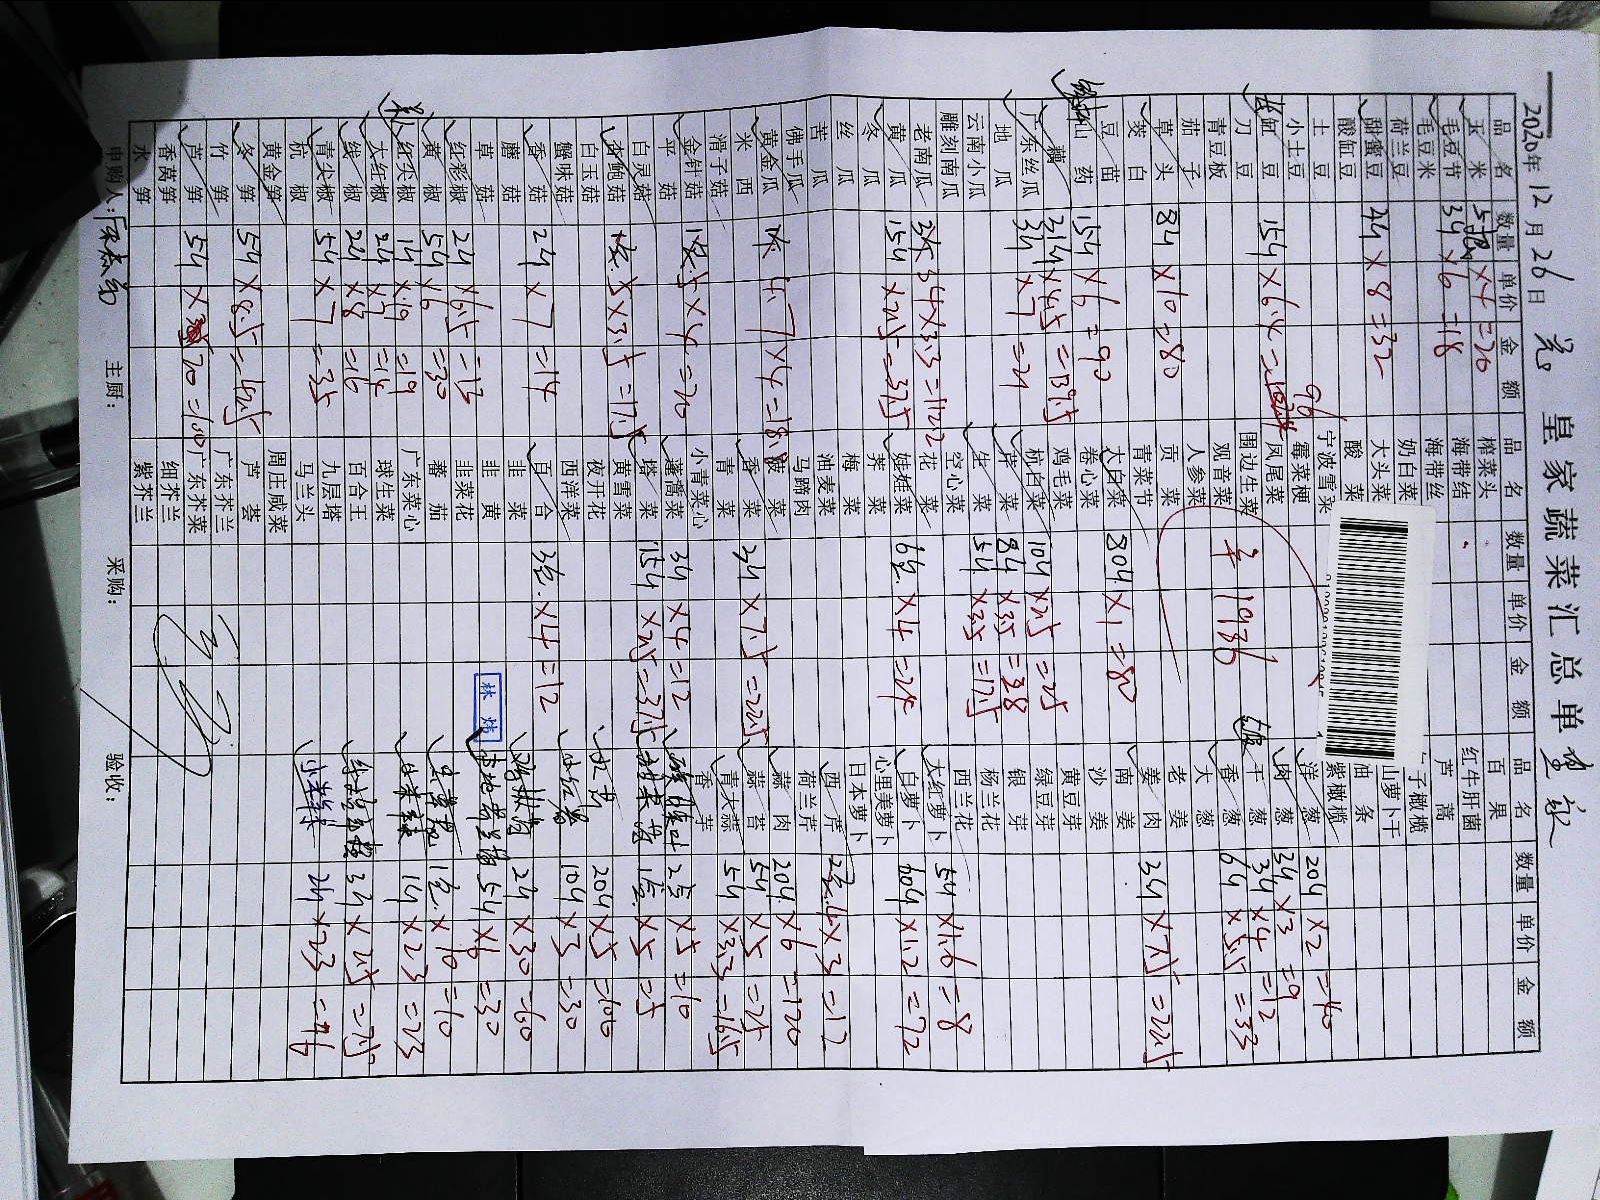 2020年12月26日 皇家蔬菜汇总单
品名 数量 单价 金额
玉米 ×4=20
毛豆节 3斤×6=18
毛豆米
荷兰豆
甜蜜豆 4斤×8=32
酸缸豆
土豆
小土豆
缸豆 15斤×6.4= 96
刀豆
青豆板
茄子
草头 8斤×10=80
茭白
豆苗
山药 15斤×6=90
藕
广东丝瓜 3斤×7=21
地瓜
云南小瓜
雕刻南瓜
老南瓜 34×3.3=112.2
黄瓜 15斤×2.5=37.5
冬瓜
丝瓜
苦瓜
佛手瓜
黄金瓜 4.7×4=18.8
米西
滑子菇
金针菇 5×4=20
平菇
白灵菇
杏鲍菇 5×3.5=17.5
白玉菇
蟹味菇
香菇 2斤×7=14
蘑菇
草菇
红彩椒 2斤×6.5=13
黄椒 5斤×6=30
红尖椒 1斤×19=19
大红椒 2斤×7=14
线椒 2斤×8=16
青尖椒 5斤×7=35
杭椒
黄金笋
冬笋 5斤×8.5=42.5
竹笋
芦笋 5斤×20=100
香莴笋
水笋
品名 数量 单价 金额
榨菜头
海带结
海带丝
奶白菜
大头菜
酸菜
宁波雪菜
霉菜梗
凤尾菜
围边生菜
观音菜
人参菜
贡菜
青菜节
大白菜 80斤×1=80
卷心菜
鸡毛菜
杭白菜 10斤×2.5=25
芹菜 8斤×3.5=28
生菜 5斤×3.5=17.5
空心菜
花菜
娃娃菜 6包×4=24
荠菜
梅菜
油麦菜
马蹄肉
菠菜
香菜 3斤×7.5=22.5
青菜
小青菜心
蓬蒿菜 3斤×4=12
塔菜 15斤×2.5=37.5
黄雪菜
夜开花
西洋菜
百合 3包×4=12
韭菜
韭黄
韭菜花
蕃茄
广东菜心
球生菜
百合王
九层塔
马兰头
周庄咸菜
芦荟
广东芥兰
广东芥菜
细芥兰
紫芥兰
1936
林炜
品名 数量 单价 金额
百果
红牛肝菌
芦蒿
子橄榄
山萝卜干
油条
紫橄榄
洋葱 20斤×2=40
肉葱 3斤×3=9
干葱 3斤×4=12
香葱 6斤×5.5=33
大葱
老姜
姜肉 3斤×7.5=22.5
南姜
沙姜
黄豆芽
绿豆芽
银芽
杨兰花
西兰花
大红萝卜 5斤×1.6=8
白萝卜 60斤×1.2=72
心里美萝卜
日本萝卜
西芹 ×3=12
荷兰芹
蒜肉 20斤×6=120
蒜苔 5斤×5=25
青大蒜 5斤×3.3=16.5
香芋
×5=10
×5=5
20斤×5=100
10斤×3=30
2斤×30=60
5斤×6=30
1包×10=10
1斤×23=23
3斤×2.5=7.5
2斤×23=46
申购人：
主厨：
采购：
验收：